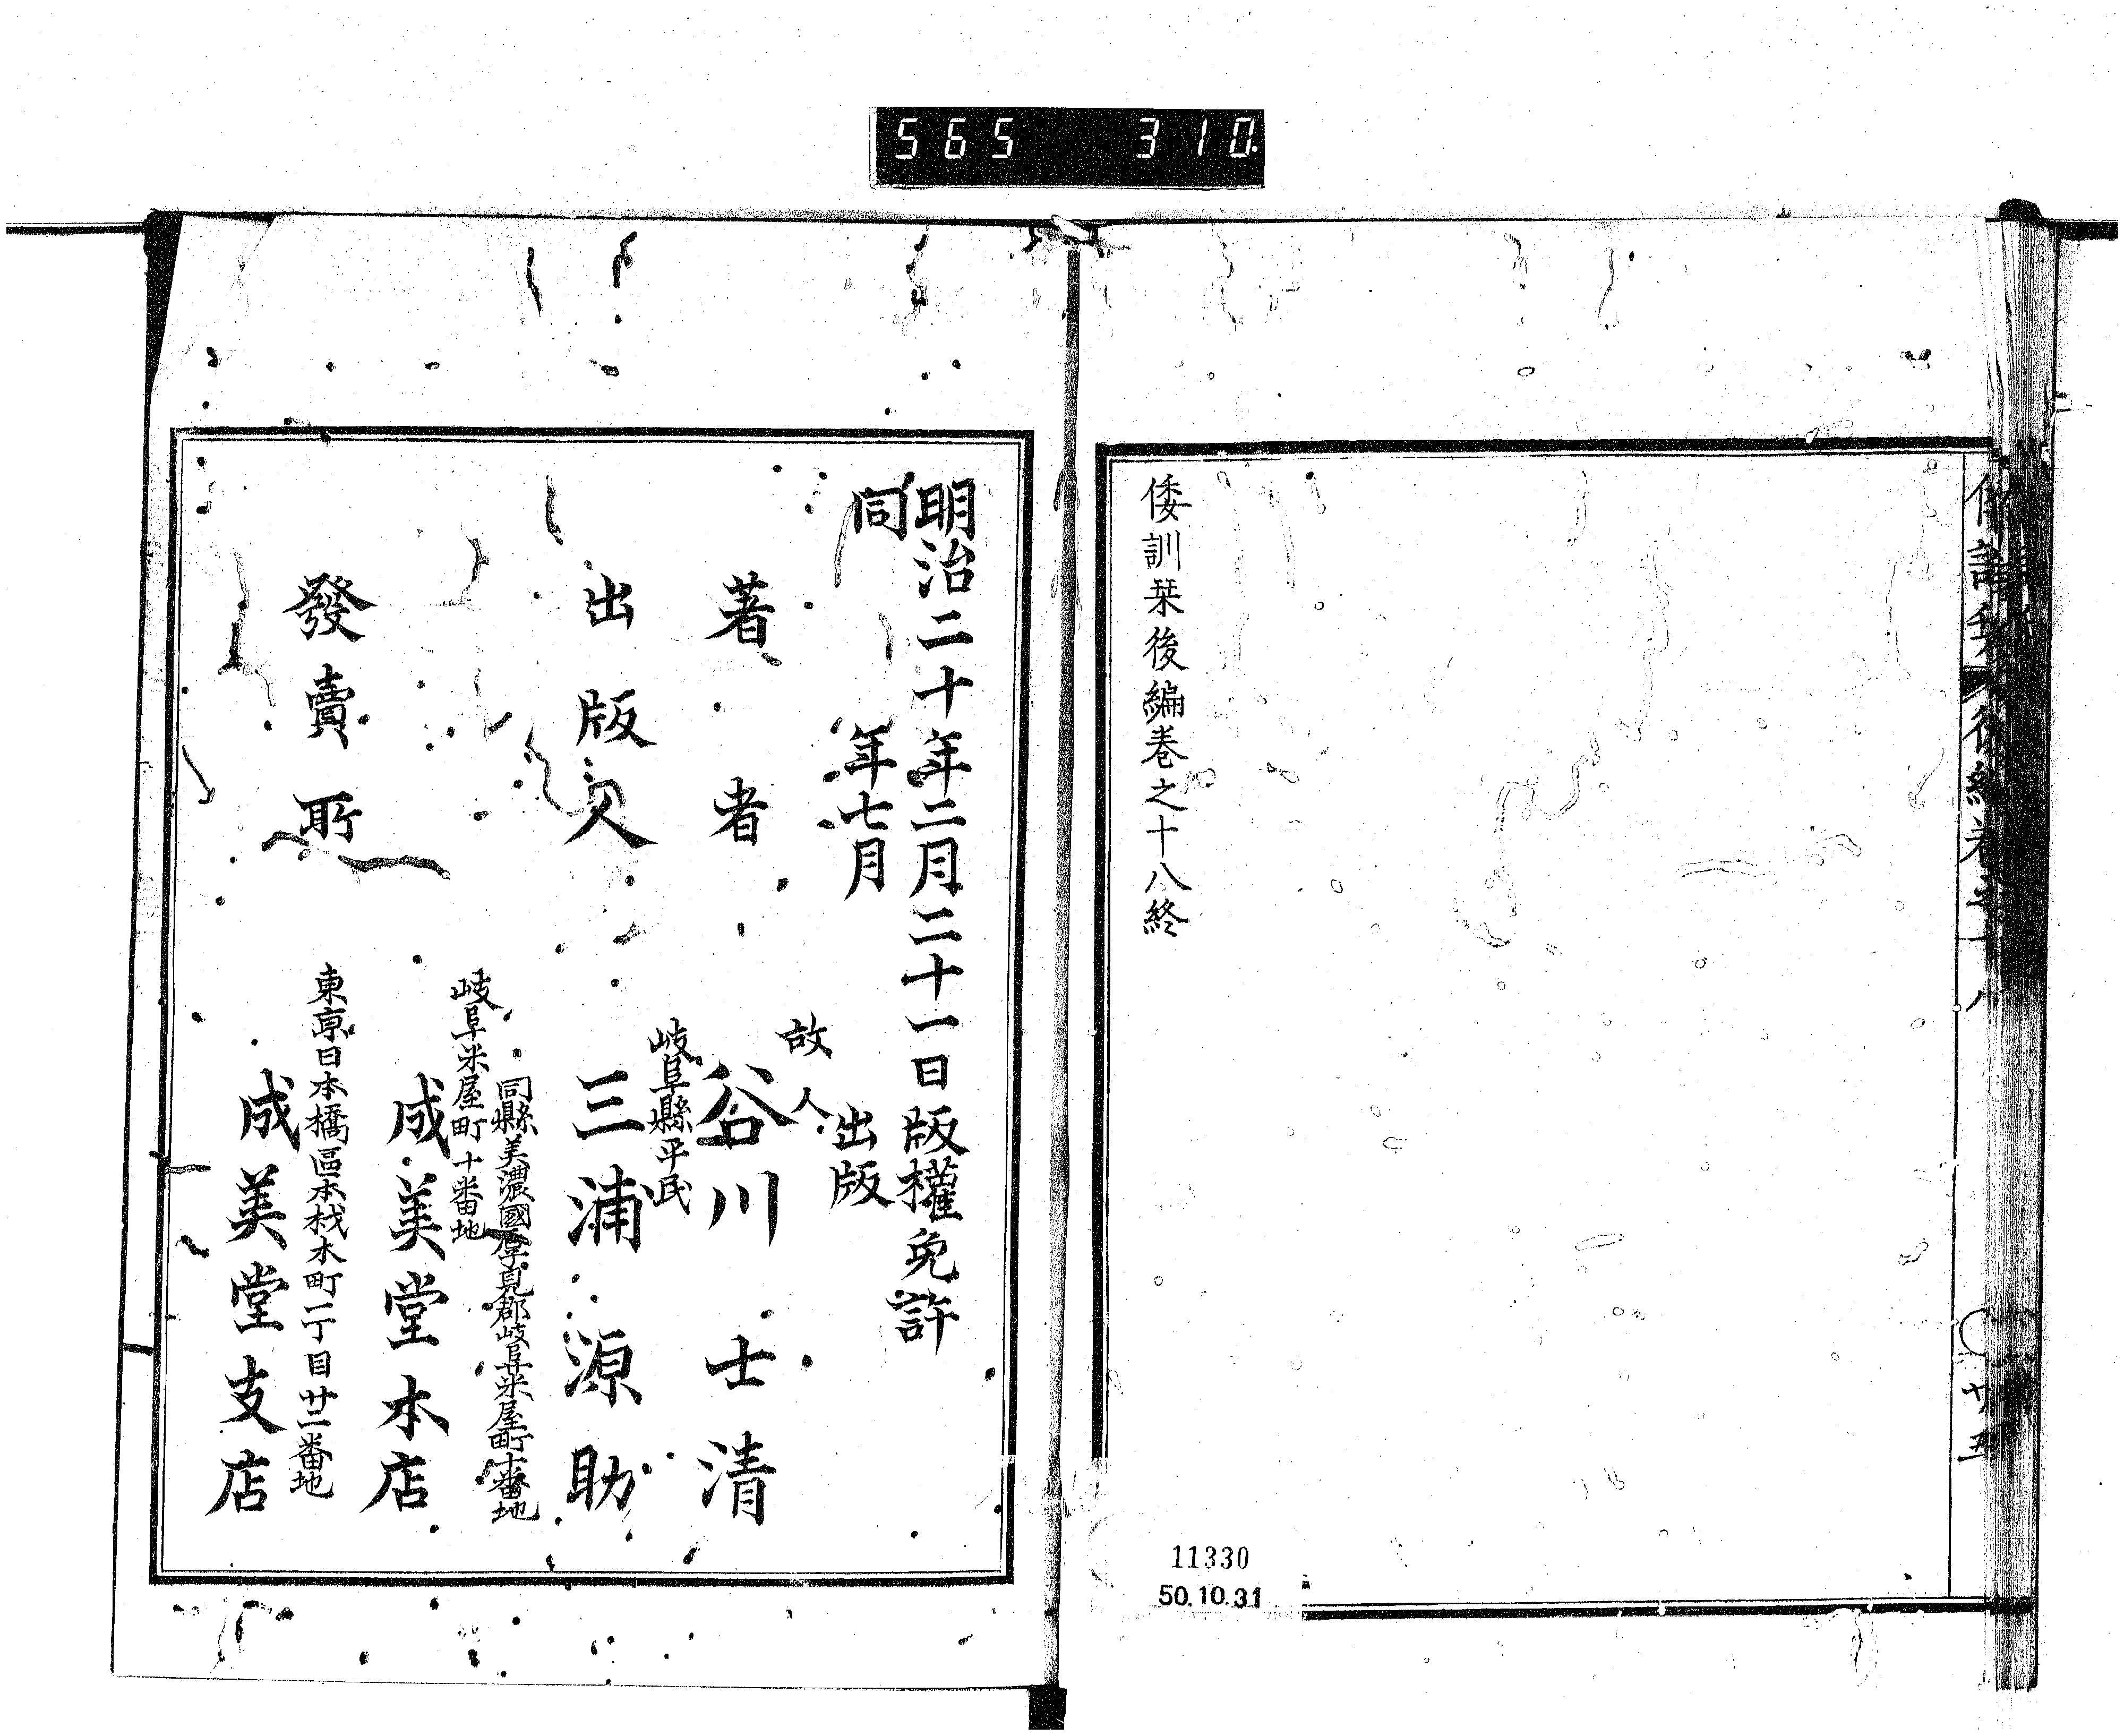 565 310.
倭訓栞後編巻之十八終
廿五
11330
50.10.31
明治二十年二月二十一日版權免許
同 年七月 出版
故人
著者 谷川士清
岐阜縣平民
出版人 三浦源助
同縣美濃國厚見郡岐阜米屋町十番地
岐阜米屋町十番地
成美堂本店
發賣所
東京日本橋區本材木町一丁目廿二番地
成美堂支店